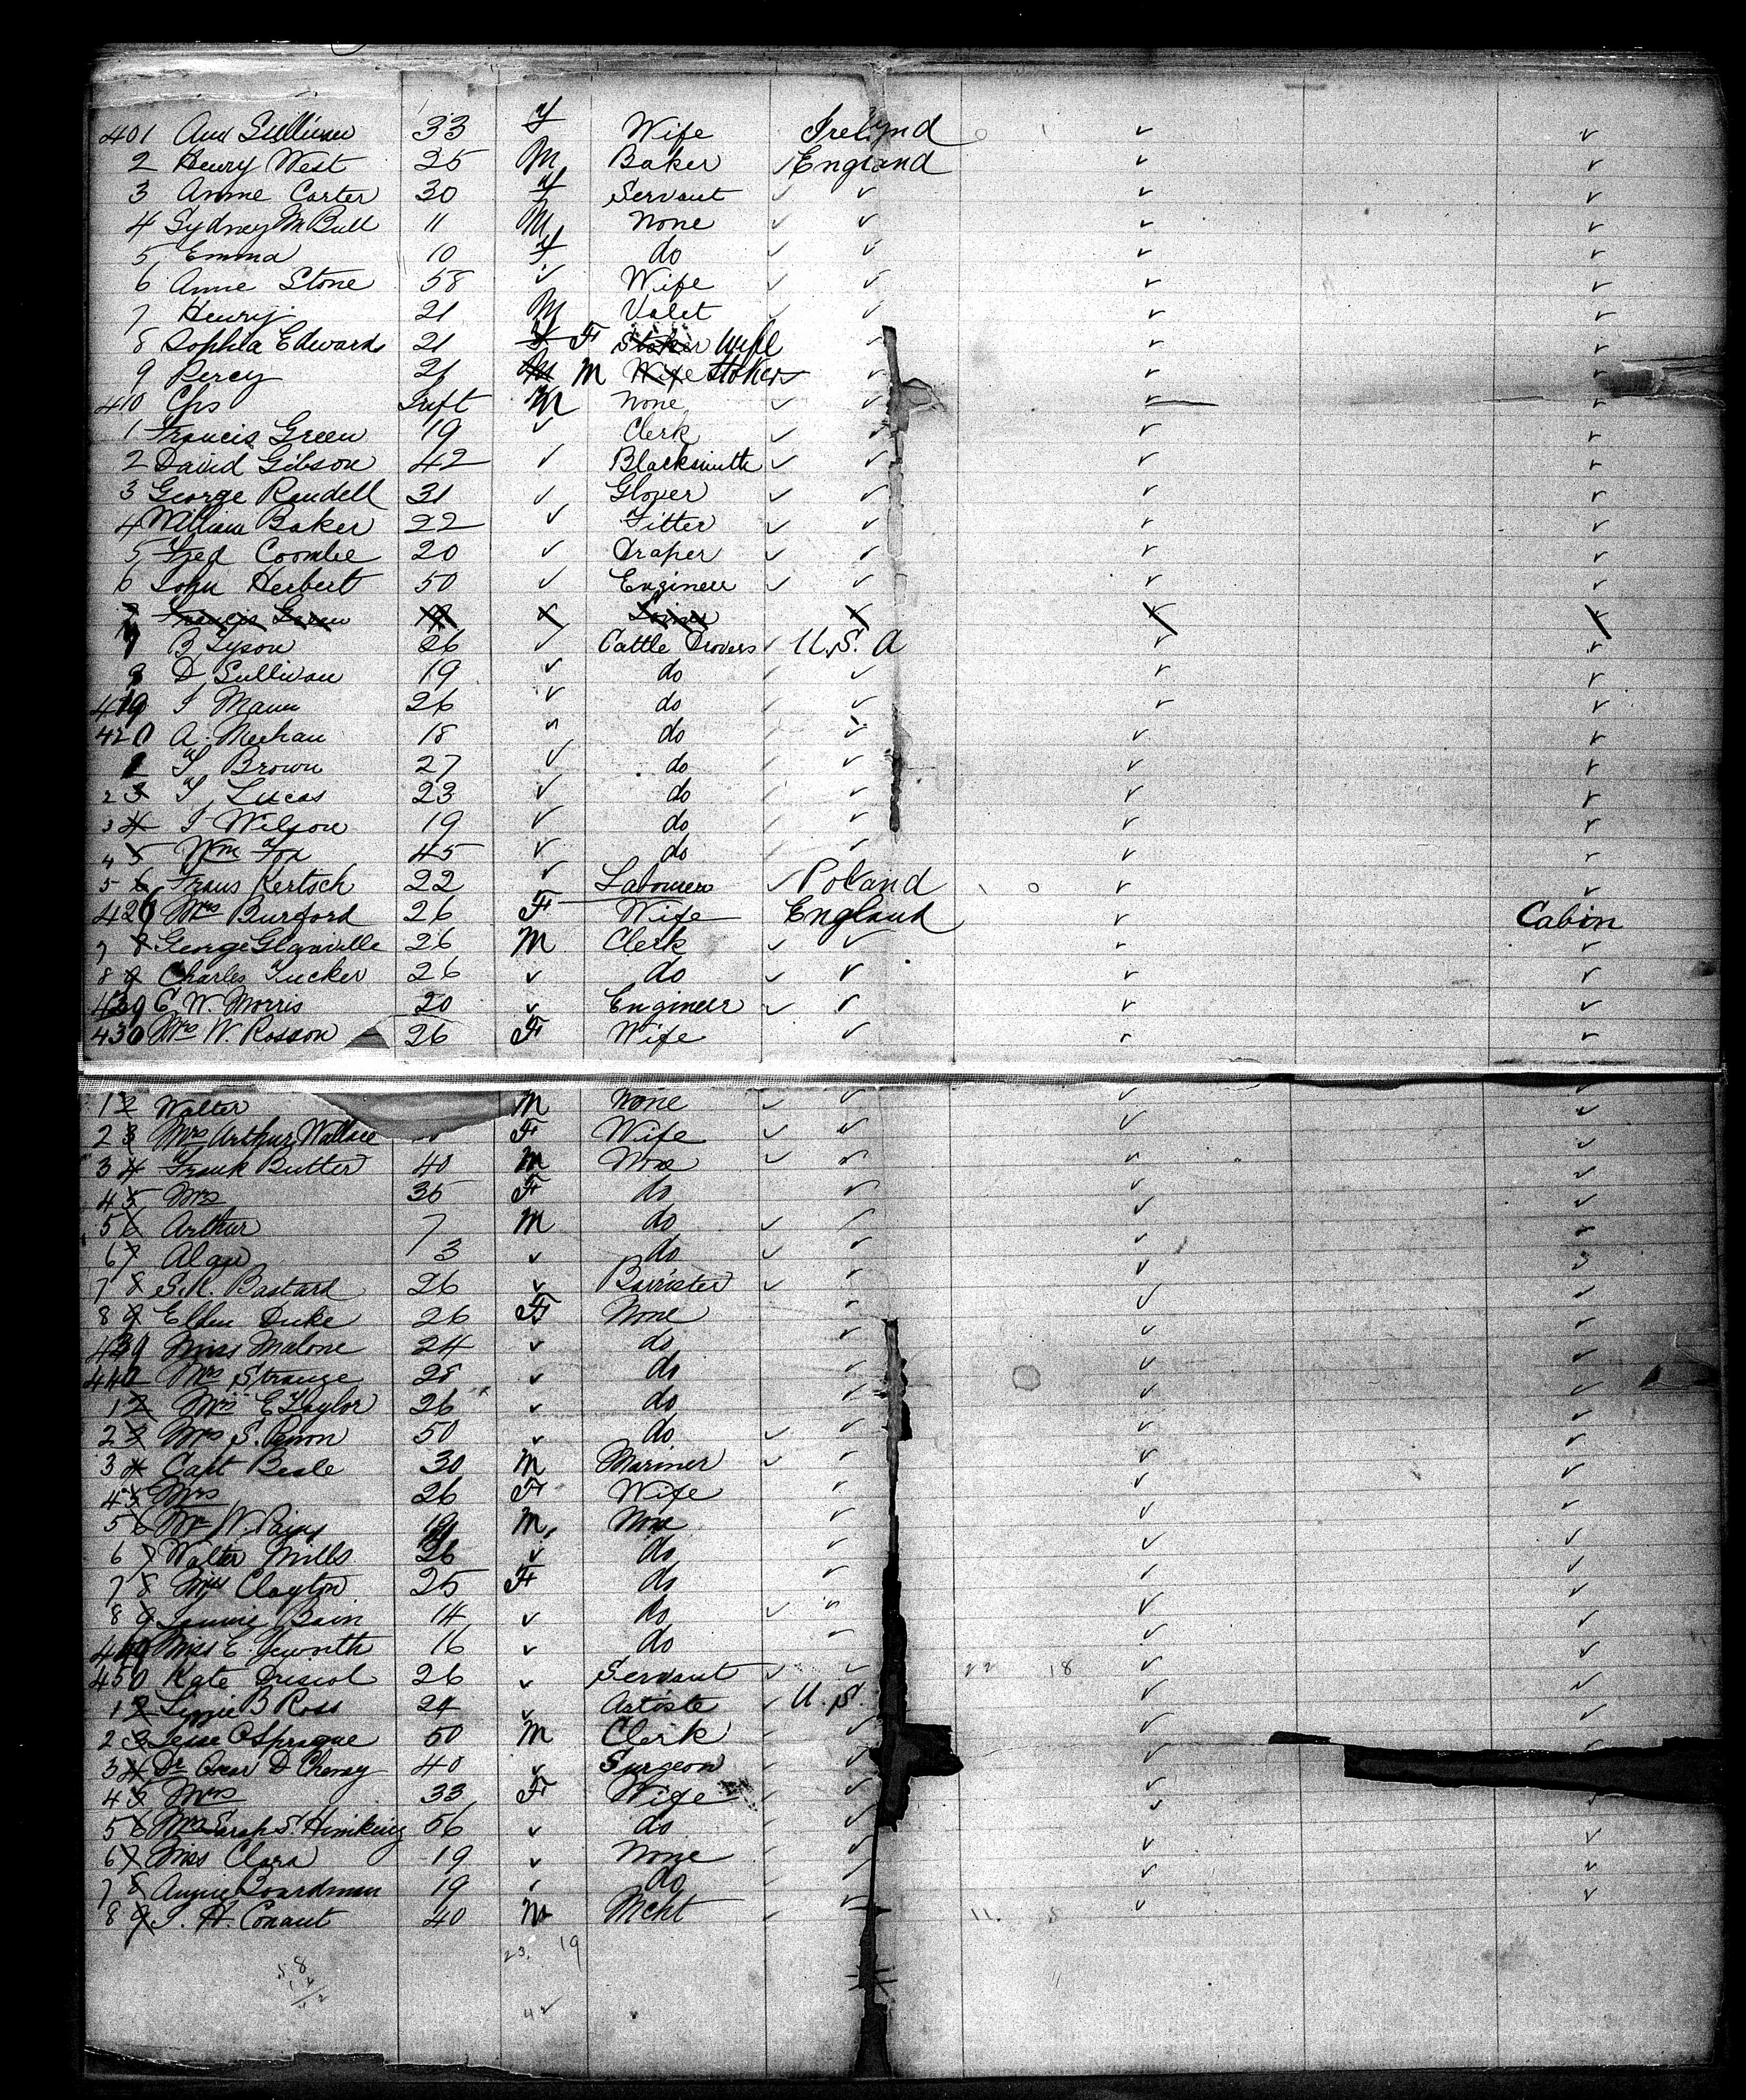 401 Ann Sullivan 33 F Wife Ireland ✓ ✓
2 Henry West 25 M Baker ✓ England ✓ ✓
3 Annie Carter 30 F Servant ✓ ✓ ✓ ✓
4 Sydney M Bull 11 M None ✓ ✓ ✓ ✓
5 Emma 10 F do ✓ ✓ ✓ ✓
6 Anne Stone 58 ✓ Wife ✓ ✓ ✓ ✓
7 Henry 21 M Valet ✓ ✓ ✓ ✓
8 Sophia Edwards 21 F F Stoker Wife ✓ ✓ ✓
9 Percy 21 M M Wife Stoker ✓ ✓ ✓ ✓
410 Chs Inft M None ✓ ✓ ✓ ✓
1 Francis Green 19 ✓ Clerk ✓ ✓ ✓ ✓
2 David Gibson 42 ✓ Blacksmith ✓ ✓ ✓ ✓
3 George Randell 31 ✓ Glover ✓ ✓ ✓ ✓
4 William Baker 22 ✓ Fitter ✓ ✓ ✓ ✓
5 Fred Coombe 20 ✓ Draper ✓ ✓ ✓ ✓
6 John Herbert 50 ✓ Engineer ✓ ✓ ✓ ✓
Francis Green 19
B Tyson 26 ✓ Cattle Drovers ✓ U.S. A ✓ ✓
D Sullivan 19 ✓ do ✓ ✓ ✓ ✓
419 Mann 26 ✓ do ✓ ✓ ✓ ✓
420 A. Meehan 18 do ✓ ✓ ✓ ✓
Brown 27 ✓ do ✓ ✓ ✓ ✓
2 3 Lucas 23 ✓ do ✓ ✓ ✓ ✓
3 4 Wilson 19 ✓ do ✓ ✓ ✓ ✓
4 5 Wm Fox 45 ✓ do ✓ ✓ ✓ ✓
5 6 Frans Kertsch 22 ✓ Labourer ✓ Poland ✓ ✓
426 Mrs Burford 26 F Wife England ✓ Cabin
7 8 George Glanville 26 M Clerk ✓ ✓ ✓ ✓
8 9 Charles Tucker 26 ✓ do ✓ ✓ ✓ ✓
429 C W. Morris 20 ✓ Engineer ✓ ✓ ✓ ✓
430 Mrs W. Rosson 26 F Wife ✓ ✓ ✓
1 2 Walter M None ✓ ✓ ✓ ✓
2 3 Mrs Arthur Wallace F Wife ✓ ✓ ✓ ✓
3 4 Frank Butter 40 M None ✓ ✓ ✓ ✓
4 5 Mrs 35 F do ✓ ✓ ✓
5 6 Arthur 7 M do ✓ ✓ ✓ ✓
6 7 Alan 3 ✓ do ✓ ✓ ✓ ✓
7 8 Bastard 26 ✓ Barrister ✓ ✓ ✓
8 9 Ellen Duke 26 F None ✓ ✓
439 Miss Malone 24 ✓ do ✓ ✓ ✓
440 Mrs Strange 28 ✓ do ✓ ✓ ✓
1 2 Mrs E Taylor 26 ✓ do ✓ ✓ ✓
2 3 Mrs S. 50 ✓ do ✓ ✓ ✓ ✓
3 4 Capt Beale 30 M Mariner ✓ ✓ ✓ ✓
4 5 Mrs 26 F Wife ✓ ✓ ✓
5 6 W. M None ✓ ✓ ✓
6 7 Walter Mills 26 ✓ do ✓ ✓ ✓
7 8 Clayton 25 F do ✓ ✓ ✓
8 9 Bain 14 ✓ do ✓ ✓ ✓ ✓
449 Miss E. 16 ✓ do ✓ ✓ ✓
450 Kate Driscol 26 ✓ Servant ✓ ✓ 22 18 ✓ ✓
1 2 Lizzie B Ross 24 ✓ Artiste ✓ U. S. ✓ ✓
2 3 Jesse C Sprague 50 M Clerk ✓ ✓ ✓
3 4 Dr D Cheney 40 ✓ Surgeon ✓ ✓ ✓
4 5 Mrs 33 F Wife ✓ ✓ ✓
5 6 Mrs Sarah S. 56 ✓ do ✓ ✓ ✓
6 7 Miss Clara 19 ✓ None ✓ ✓ ✓
7 8 Boardman 19 ✓ do ✓ ✓ ✓
8 9 H. Conant 40 M Mcht ✓ 11. 8 ✓ ✓
23. 19
58
42